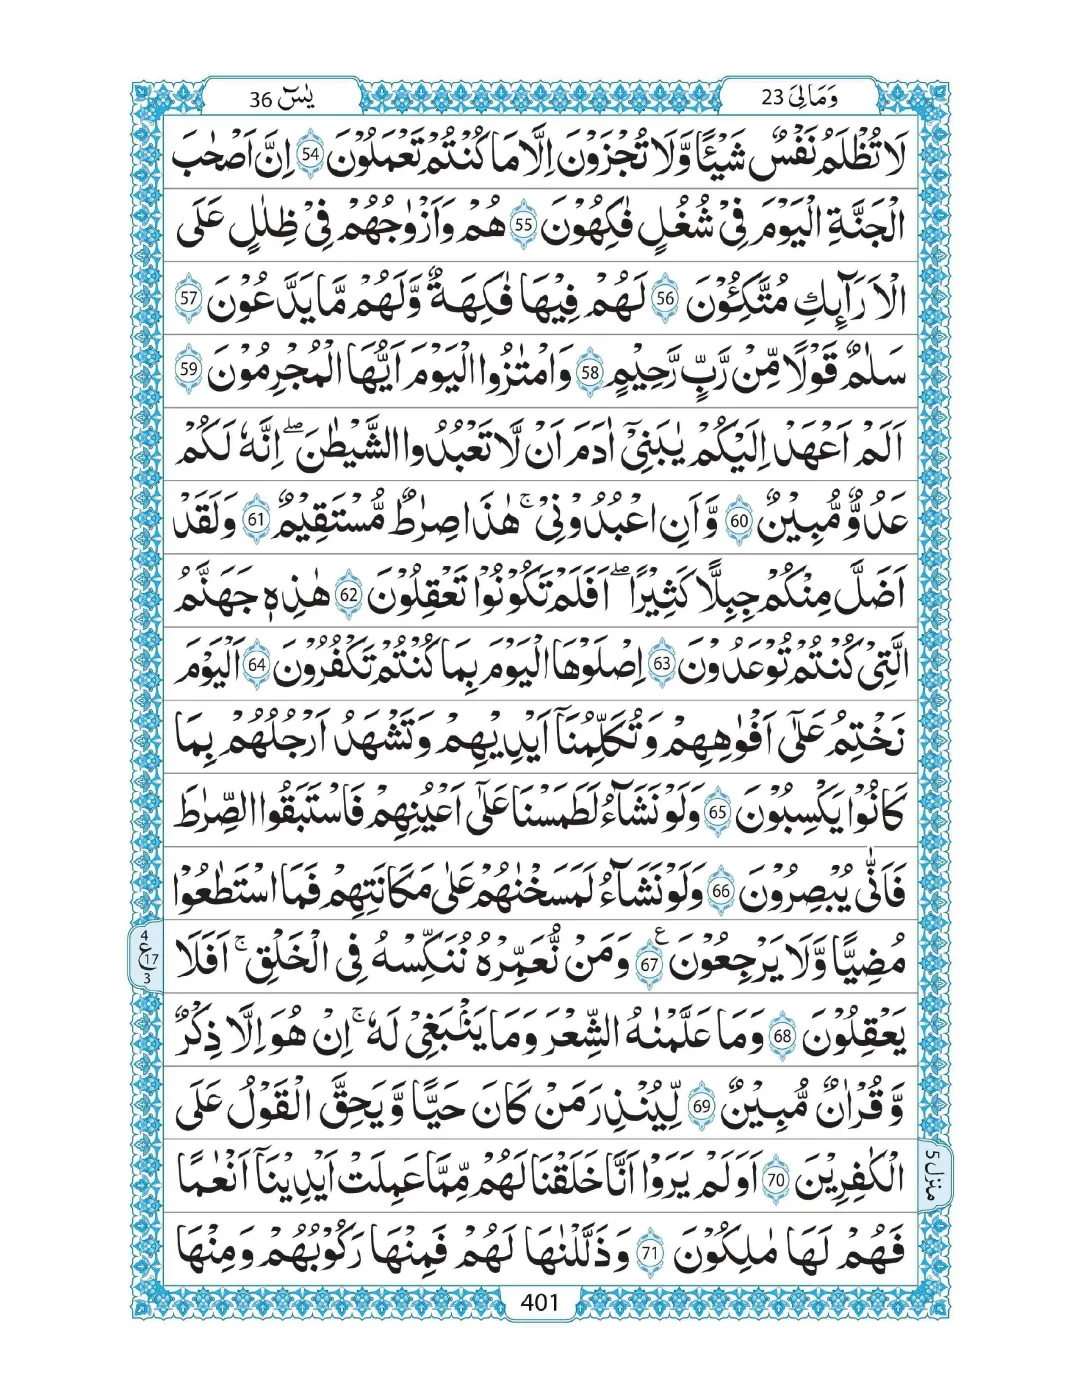 وَمَالِیَ 23
یٰسٓ 36
لَا تُظْلَمُ نَفْسٌ شَیْـًٔا وَّلَا تُجْزَوْنَ اِلَّا مَا كُنْتُمْ تَعْمَلُوْنَ 54 اِنَّ اَصْحٰبَ
الْجَنَّةِ الْیَوْمَ فِیْ شُغُلٍ فٰكِهُوْنَ 55 هُمْ وَاَزْوٰجُهُمْ فِیْ ظِلٰلٍ عَلَی
الْاَرَآىِٕكِ مُتَّكِـُٔوْنَ 56 لَهُمْ فِیْهَا فٰكِهَةٌ وَّلَهُمْ مَّا یَدَّعُوْنَ 57
سَلٰمٌ قَوْلًا مِّنْ رَّبٍّ رَّحِیْمٍ 58 وَامْتٰزُوا الْیَوْمَ اَیُّهَا الْمُجْرِمُوْنَ 59
اَلَمْ اَعْهَدْ اِلَیْكُمْ یٰبَنِیْٓ اٰدَمَ اَنْ لَّا تَعْبُدُوا الشَّیْطٰنَ ۖ اِنَّهٗ لَكُمْ
عَدُوٌّ مُّبِیْنٌ 60 وَّاَنِ اعْبُدُوْنِیْ ۚ هٰذَا صِرٰطٌ مُّسْتَقِیْمٌ 61 وَلَقَدْ
اَضَلَّ مِنْكُمْ جِبِلًّا كَثِیْرًا ۖ اَفَلَمْ تَكُوْنُوْا تَعْقِلُوْنَ 62 هٰذِهٖ جَهَنَّمُ
الَّتِیْ كُنْتُمْ تُوْعَدُوْنَ 63 اِصْلَوْهَا الْیَوْمَ بِمَا كُنْتُمْ تَكْفُرُوْنَ 64 اَلْیَوْمَ
نَخْتِمُ عَلٰٓی اَفْوٰهِهِمْ وَتُكَلِّمُنَآ اَیْدِیْهِمْ وَتَشْهَدُ اَرْجُلُهُمْ بِمَا
كَانُوْا یَكْسِبُوْنَ 65 وَلَوْ نَشَآءُ لَطَمَسْنَا عَلٰٓی اَعْیُنِهِمْ فَاسْتَبَقُوا الصِّرٰطَ
فَاَنّٰی یُبْصِرُوْنَ 66 وَلَوْ نَشَآءُ لَمَسَخْنٰهُمْ عَلٰی مَكَانَتِهِمْ فَمَا اسْتَطٰعُوْا
مُضِیًّا وَّلَا یَرْجِعُوْنَ 67 ع وَمَنْ نُّعَمِّرْهُ نُنَكِّسْهُ فِی الْخَلْقِ ۚ اَفَلَا
4 ع 17 3
یَعْقِلُوْنَ 68 وَمَا عَلَّمْنٰهُ الشِّعْرَ وَمَا یَنْۢبَغِیْ لَهٗ ۚ اِنْ هُوَ اِلَّا ذِكْرٌ
وَّقُرْاٰنٌ مُّبِیْنٌ 69 لِّیُنْذِرَ مَنْ كَانَ حَیًّا وَّیَحِقَّ الْقَوْلُ عَلَی
الْكٰفِرِیْنَ 70 اَوَلَمْ یَرَوْا اَنَّا خَلَقْنَا لَهُمْ مِّمَّا عَمِلَتْ اَیْدِیْنَآ اَنْعٰمًا
منزل 5
فَهُمْ لَهَا مٰلِكُوْنَ 71 وَذَلَّلْنٰهَا لَهُمْ فَمِنْهَا رَكُوْبُهُمْ وَمِنْهَا
401